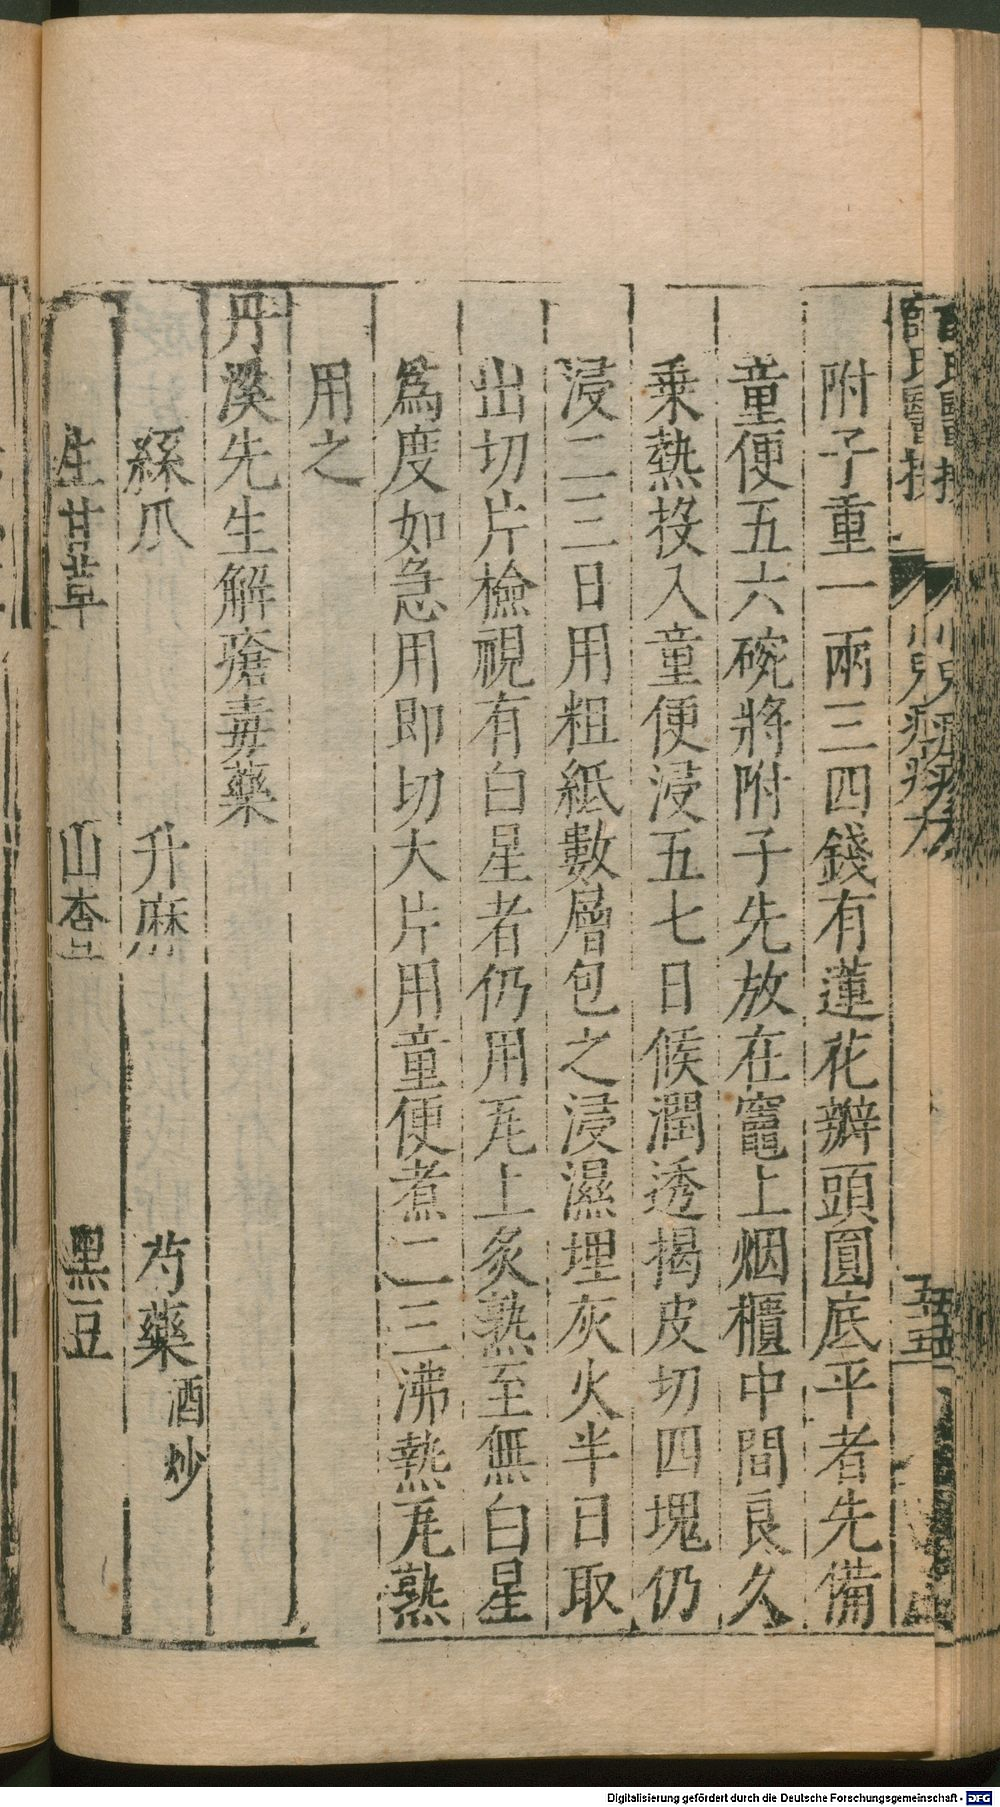 附子重一兩三四錢有蓮花瓣頭圓底平者先備
童便五六碗將附子先放在竈上烟櫃中間良久
乗熱投入童便浸五七日候潤透揭皮切四塊仍
浸二三日用粗紙數層包之浸濕埋灰火半日取
出切片檢視有白星者仍用瓦上炙熟至無白星
爲度如急用即切大片用童便煮二三沸熱瓦熟
用之
丹溪先生解瘡毒藥
絲爪 升麻 芍藥酒炒
生甘草 山查 黑豆
Digitalisierung gefördert durch die Deutsche Forschungsgemeinschaft - DFG